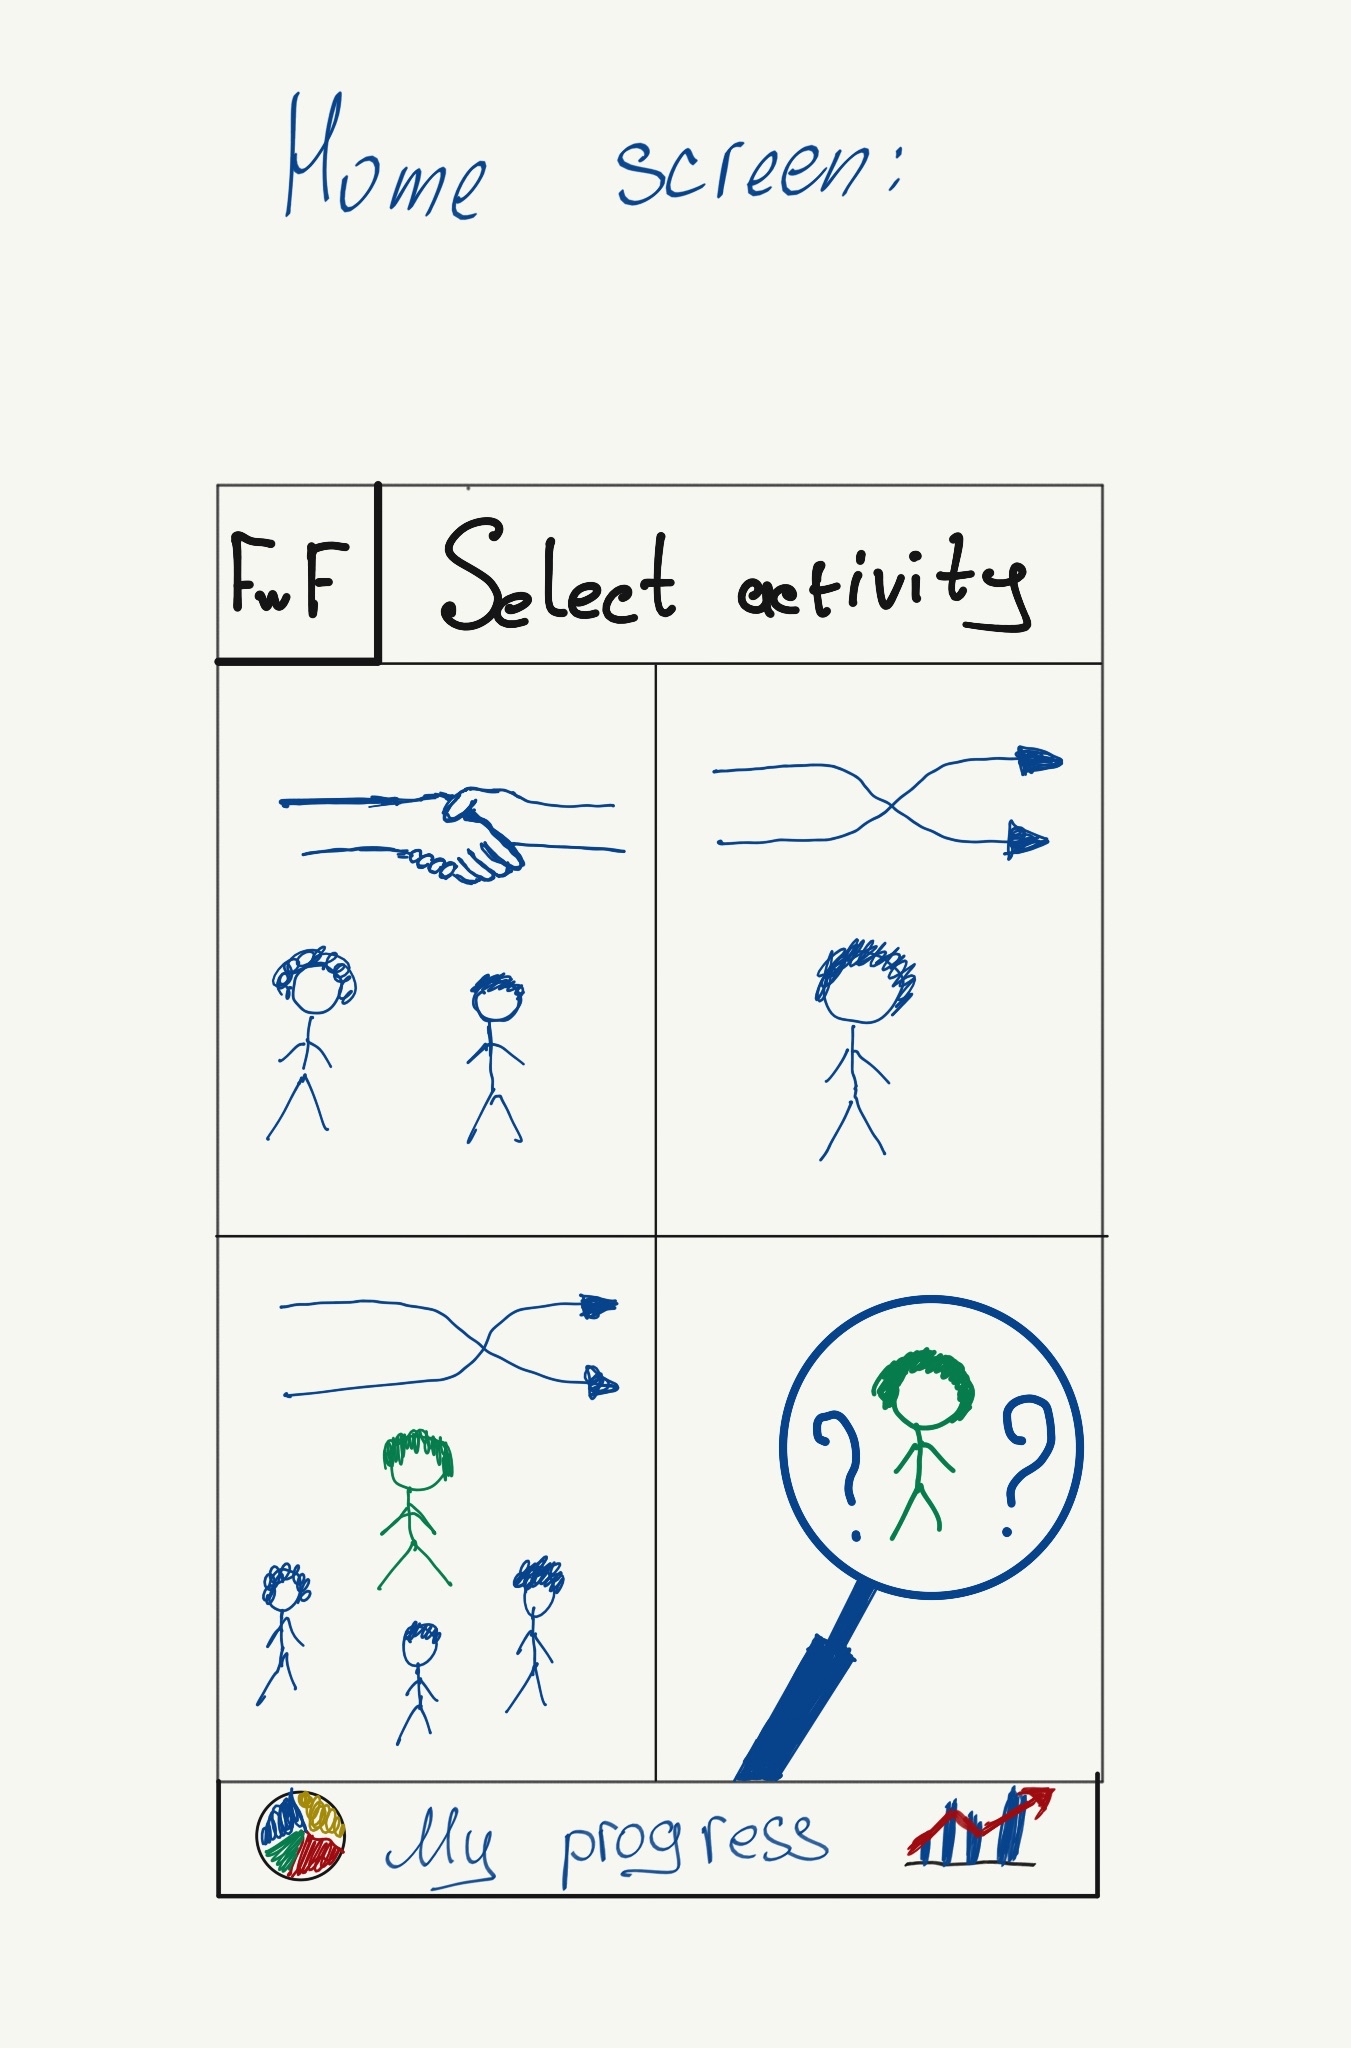 Home screen:
FwF Select activity
? ?
My progress